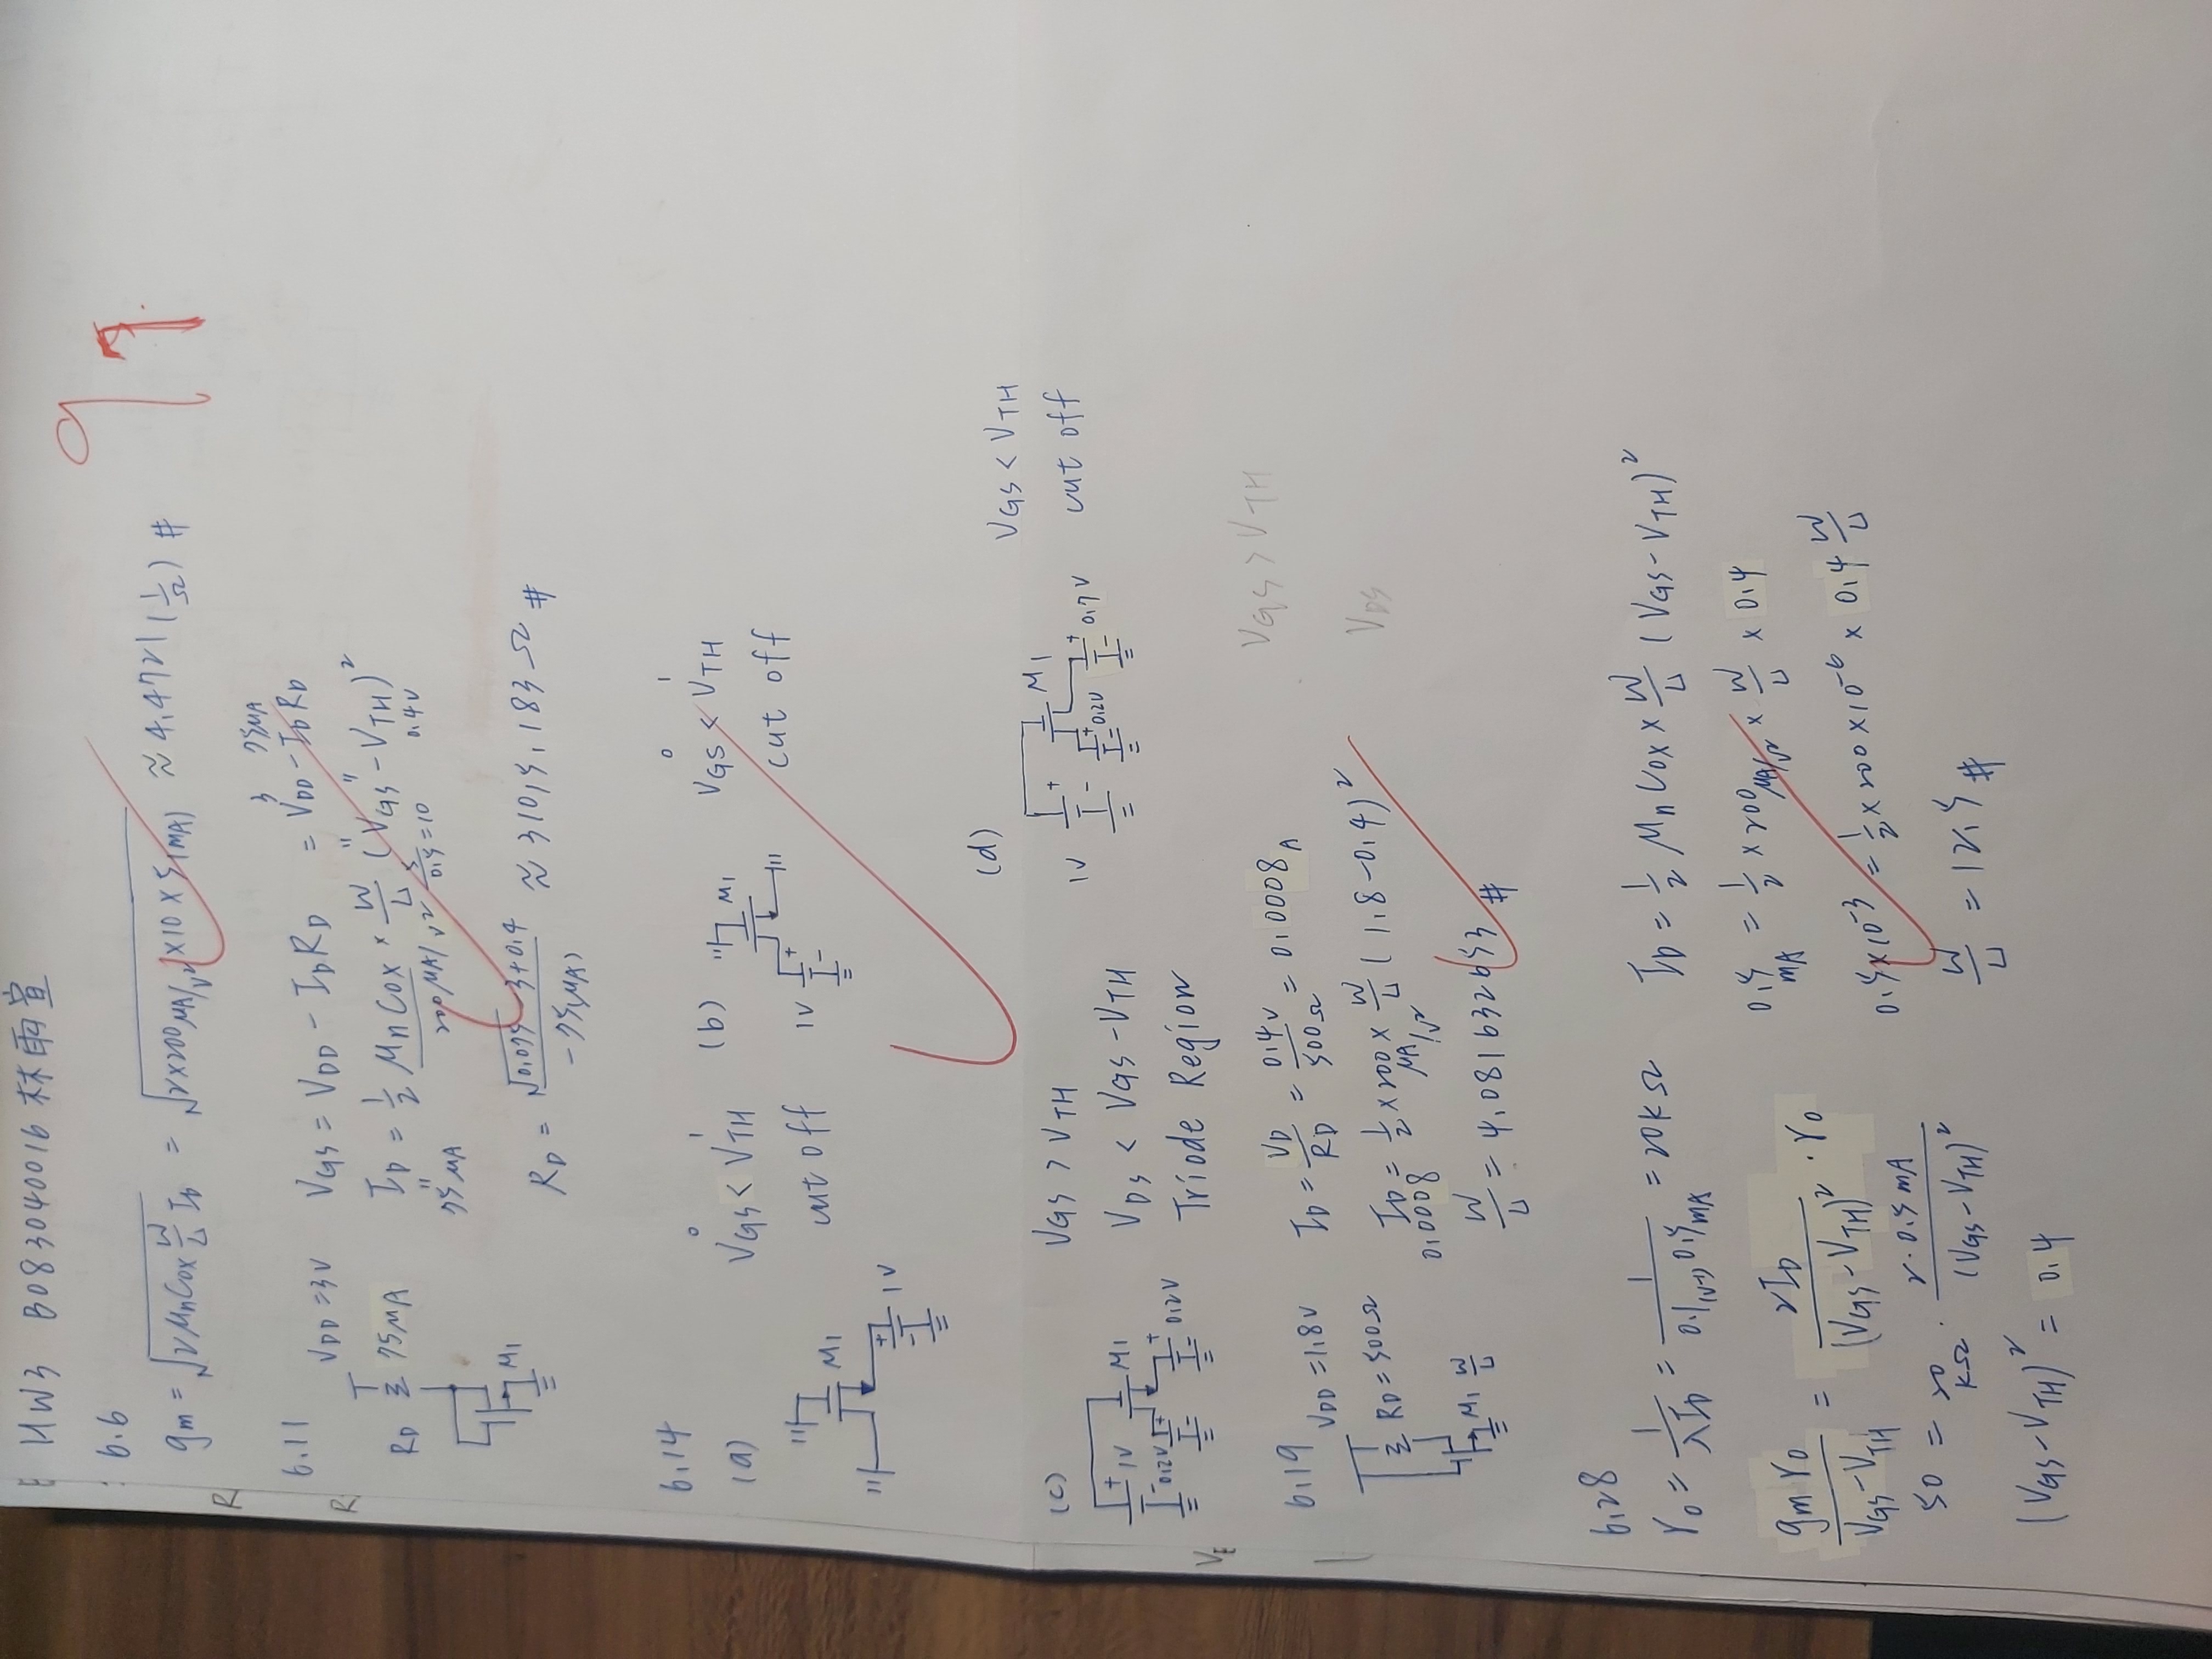 HW3 B083040016 林雨宣
97
6.6
gm = √(2 μnCox W/L ID) = √(2×200 μA/V² ×10 × 5(mA)) ≈ 4.4721 (1/Ω) #
R
6.11
VDD = 3V
VGS = VDD - IDRD = VDD - IDRD
3 75μA
R
RD 75μA
ID = 1/2 μnCox × W/L ("VGS" - VTH)²
" 75μA 200μA/V² 5/0.5 = 10 0.4V
M1
RD = (√0.075 - 3 + 0.4) / -75(μA) ≈ 31015.183 Ω #
6.14
(a)
0 1
VGS < VTH
cut off
M1
1V
(b)
M1
1V + -
0 1
VGS < VTH
cut off
(c)
1V
M1
0.2V
0.2V
VGS > VTH
VDS < VGS - VTH
Triode Region
(d)
1V
M1
0.2V
0.7V
VGS < VTH
cut off
VE
VGS > VTH
VDS
6.19
VDD = 1.8V
RD = 500Ω
M1 W/L
ID = VD/RD = 0.4V/500Ω = 0.0008A
ID = 1/2 × 200 × W/L (1.8 - 0.4)²
0.0008 μA/V²
W/L = 4.081632653 #
6.28
ro = 1/λID = 1/(0.1(V-1) 0.5mA) = 20kΩ
gm ro/(VGS - VTH) = 2ID/(VGS - VTH)² · ro
50 = 20kΩ · 2·0.5mA/(VGS - VTH)²
(VGS - VTH)² = 0.4
ID = 1/2 μnCox × W/L (VGS - VTH)²
0.5mA = 1/2 × 200μA/V² × W/L × 0.4
0.5×10⁻³ = 1/2 × 200×10⁻⁶ × 0.4 W/L
W/L = 12.5 #